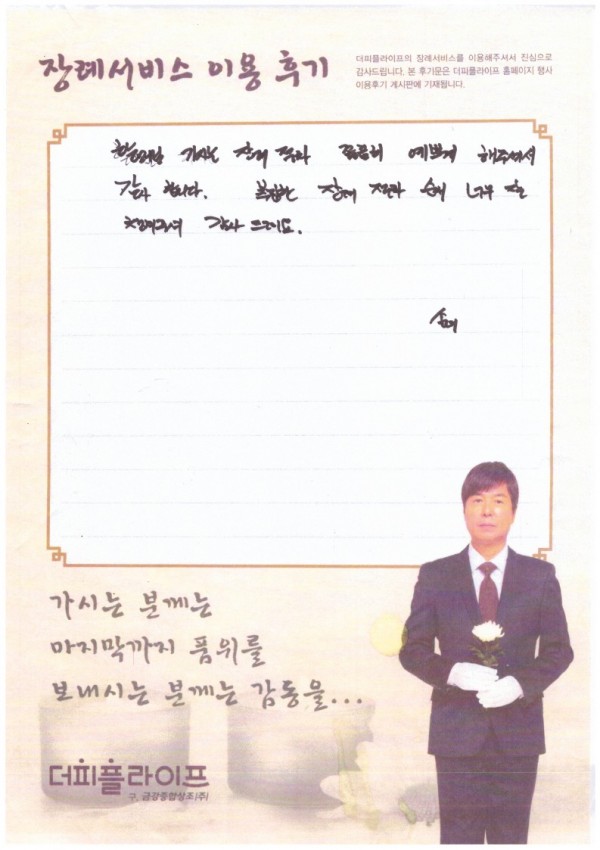 장례서비스 이용 후기
더피플라이프의 장례서비스를 이용해주셔서 진심으로
감사드립니다. 본 후기문은 더피플라이프 홈페이지 행사
이용후기 게시판에 기재됩니다.
할머님 가시는 장례 절차 예쁘게 해주셔서
감사 합니다. 복잡한 장례 절차 너무
감사 드려요.
가시는 분께는
마지막까지 품위를
보내시는 분께는 감동을...
더피플라이프
구. 금강종합상조(주)